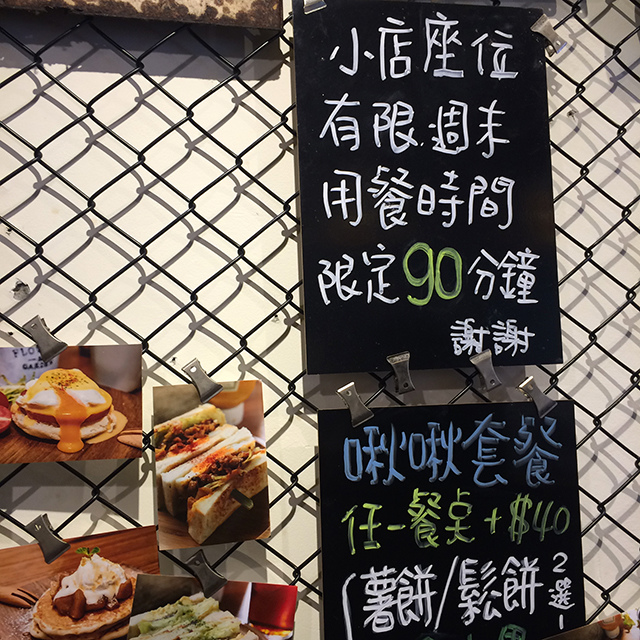 小店座位
有限,週末
用餐時間
限定90分鐘
謝謝
啾啾套餐
任一餐桌+$40
(薯餅/鬆餅 2選一